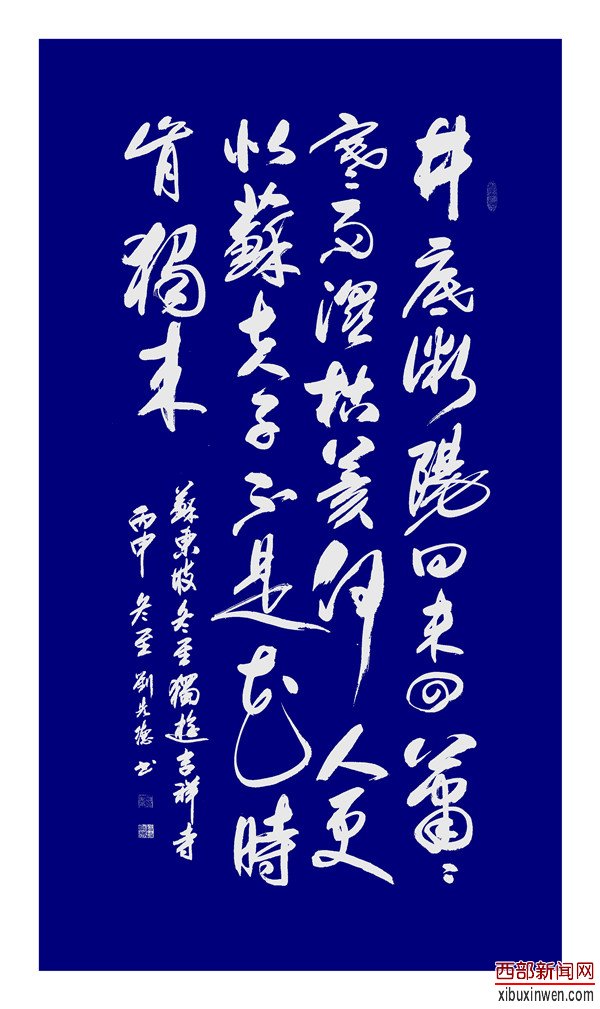 井底微陽回未回蕭〻
寒雨濕枯荄何人更
似蘇夫子不是花時
肯獨來
蘇東坡冬至獨遊吉祥寺
丙申冬至劉先德書
西部新闻网
xibuxinwen.com